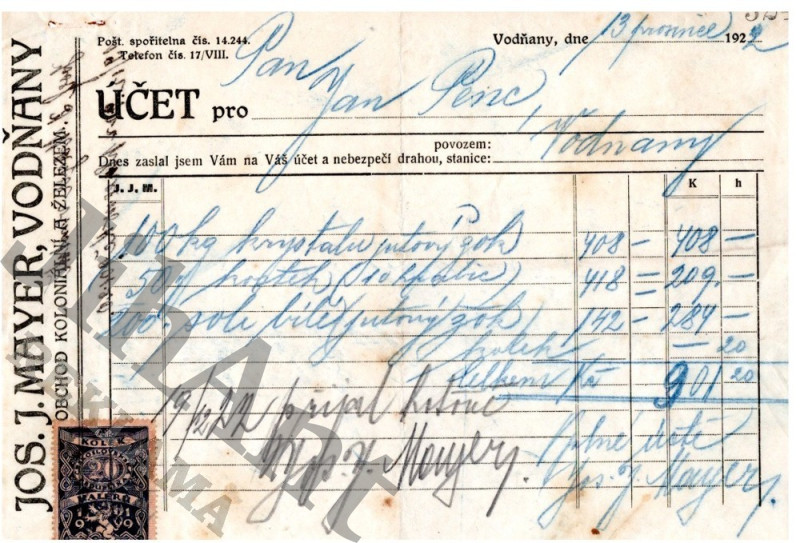 JOS. J. MAYER, VODŇANY
OBCHOD KOLONIÁLNÍ A ŽELEZEM.
Pošt. spořitelna čís. 14.244.
Telefon čís. 17/VIII.
Vodňany, dne 13 prosince 1922
Pan
ÚČET pro Jan Penc,
povozem: Vodnany
Dnes zaslal jsem Vám na Váš účet a nebezpečí drahou, stanice:
J. J. M. K h
100 kg krystalu jutový žok 408 — 408 —
50 kostek 418 = 209. —
200 sole bílé jutový žok 142 — 284 —
kolek — 20
celkem Kč 901 20
19/12 22 přijal
Jos. J. Mayer.
Jos. J. Mayer.
KOLEK
20
HALÉŘŮ
1901
99
JihoArt
REKLAMA